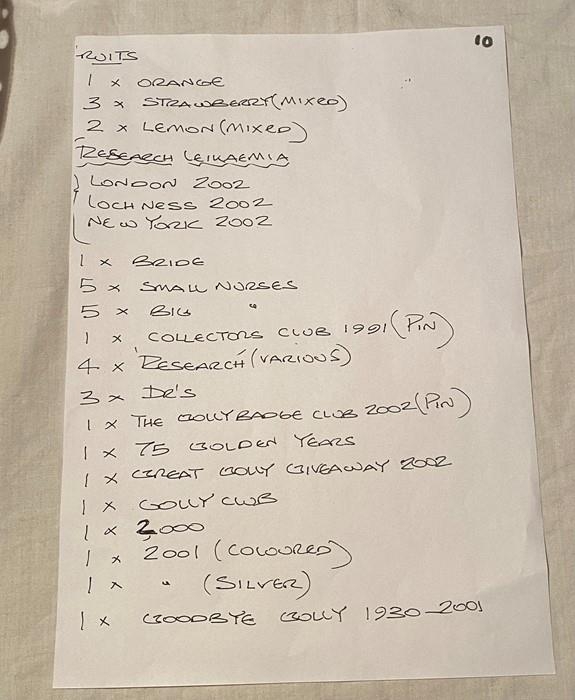 10
FRUITS
1 x ORANGE
3 x STRAWBERRY (MIXED)
2 x LEMON (MIXED)
RESEARCH LEIKAEMIA
LONDON 2002
LOCH NESS 2002
NEW YORK 2002
1 x BRIDE
5 x SMALL NURSES
5 x BIG "
1 x COLLECTORS CLUB 1991 (PIN)
4 x 'RESEARCH' (VARIOUS)
3 x DR'S
1 x THE GOLLY BADGE CLUB 2002 (PIN)
1 x 75 GOLDEN YEARS
1 x GREAT GOLLY GIVEAWAY 2002
1 x GOLLY CLUB
1 x 2,000
1 x 2001 (COLOURED)
1 x " (SILVER)
1 x GOODBYE GOLLY 1930-2001